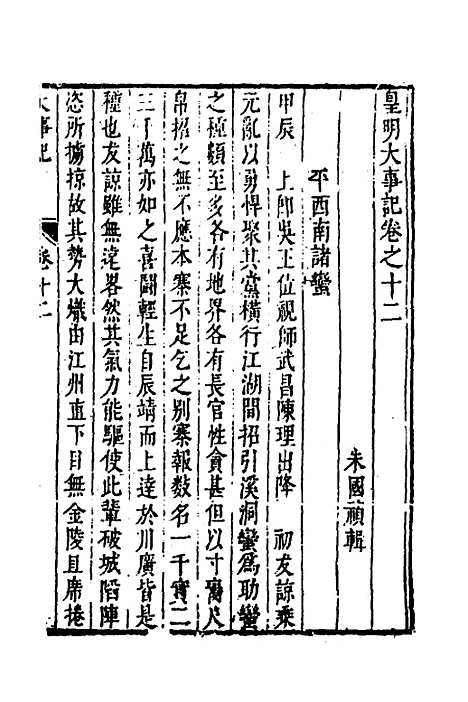 皇明大事記卷之十二
朱國禎輯
平西南諸蠻
甲辰　上卽吳王位視師武昌陳理出降　初友諒乘
元亂以勇悍聚其黨橫行江湖間招引溪洞蠻爲助蠻
之種類至多各有地界各有長官性貪甚但以寸寶尺
帛招之無不應本寨不足乞之別寨報數名一千實二
三千萬亦如之喜鬪輕生自辰靖而上達於川廣皆是
種也友諒雖無遠畧然其氣力能驅使此輩破城䧟陣
恣所擄掠故其勢大熾由江州直下目無金陵且席捲
大事記
卷十二